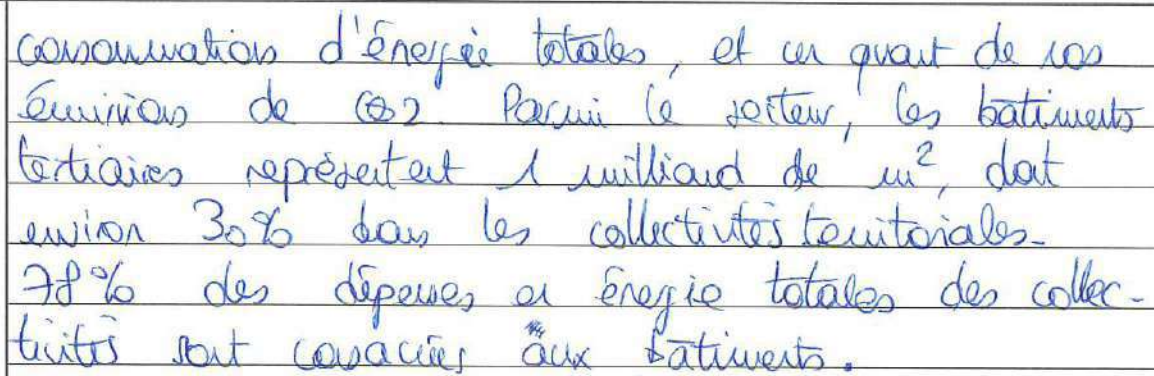 consommations d'énergie totales, et un quart de nos
émissions de CO2. Parmi le secteur, les bâtiments
tertiaires représentent 1 milliard de m², dont
environ 30% dans les collectivités territoriales.
78% des dépenses en énergie totales des collec-
tivités sont consacrées aux bâtiments.